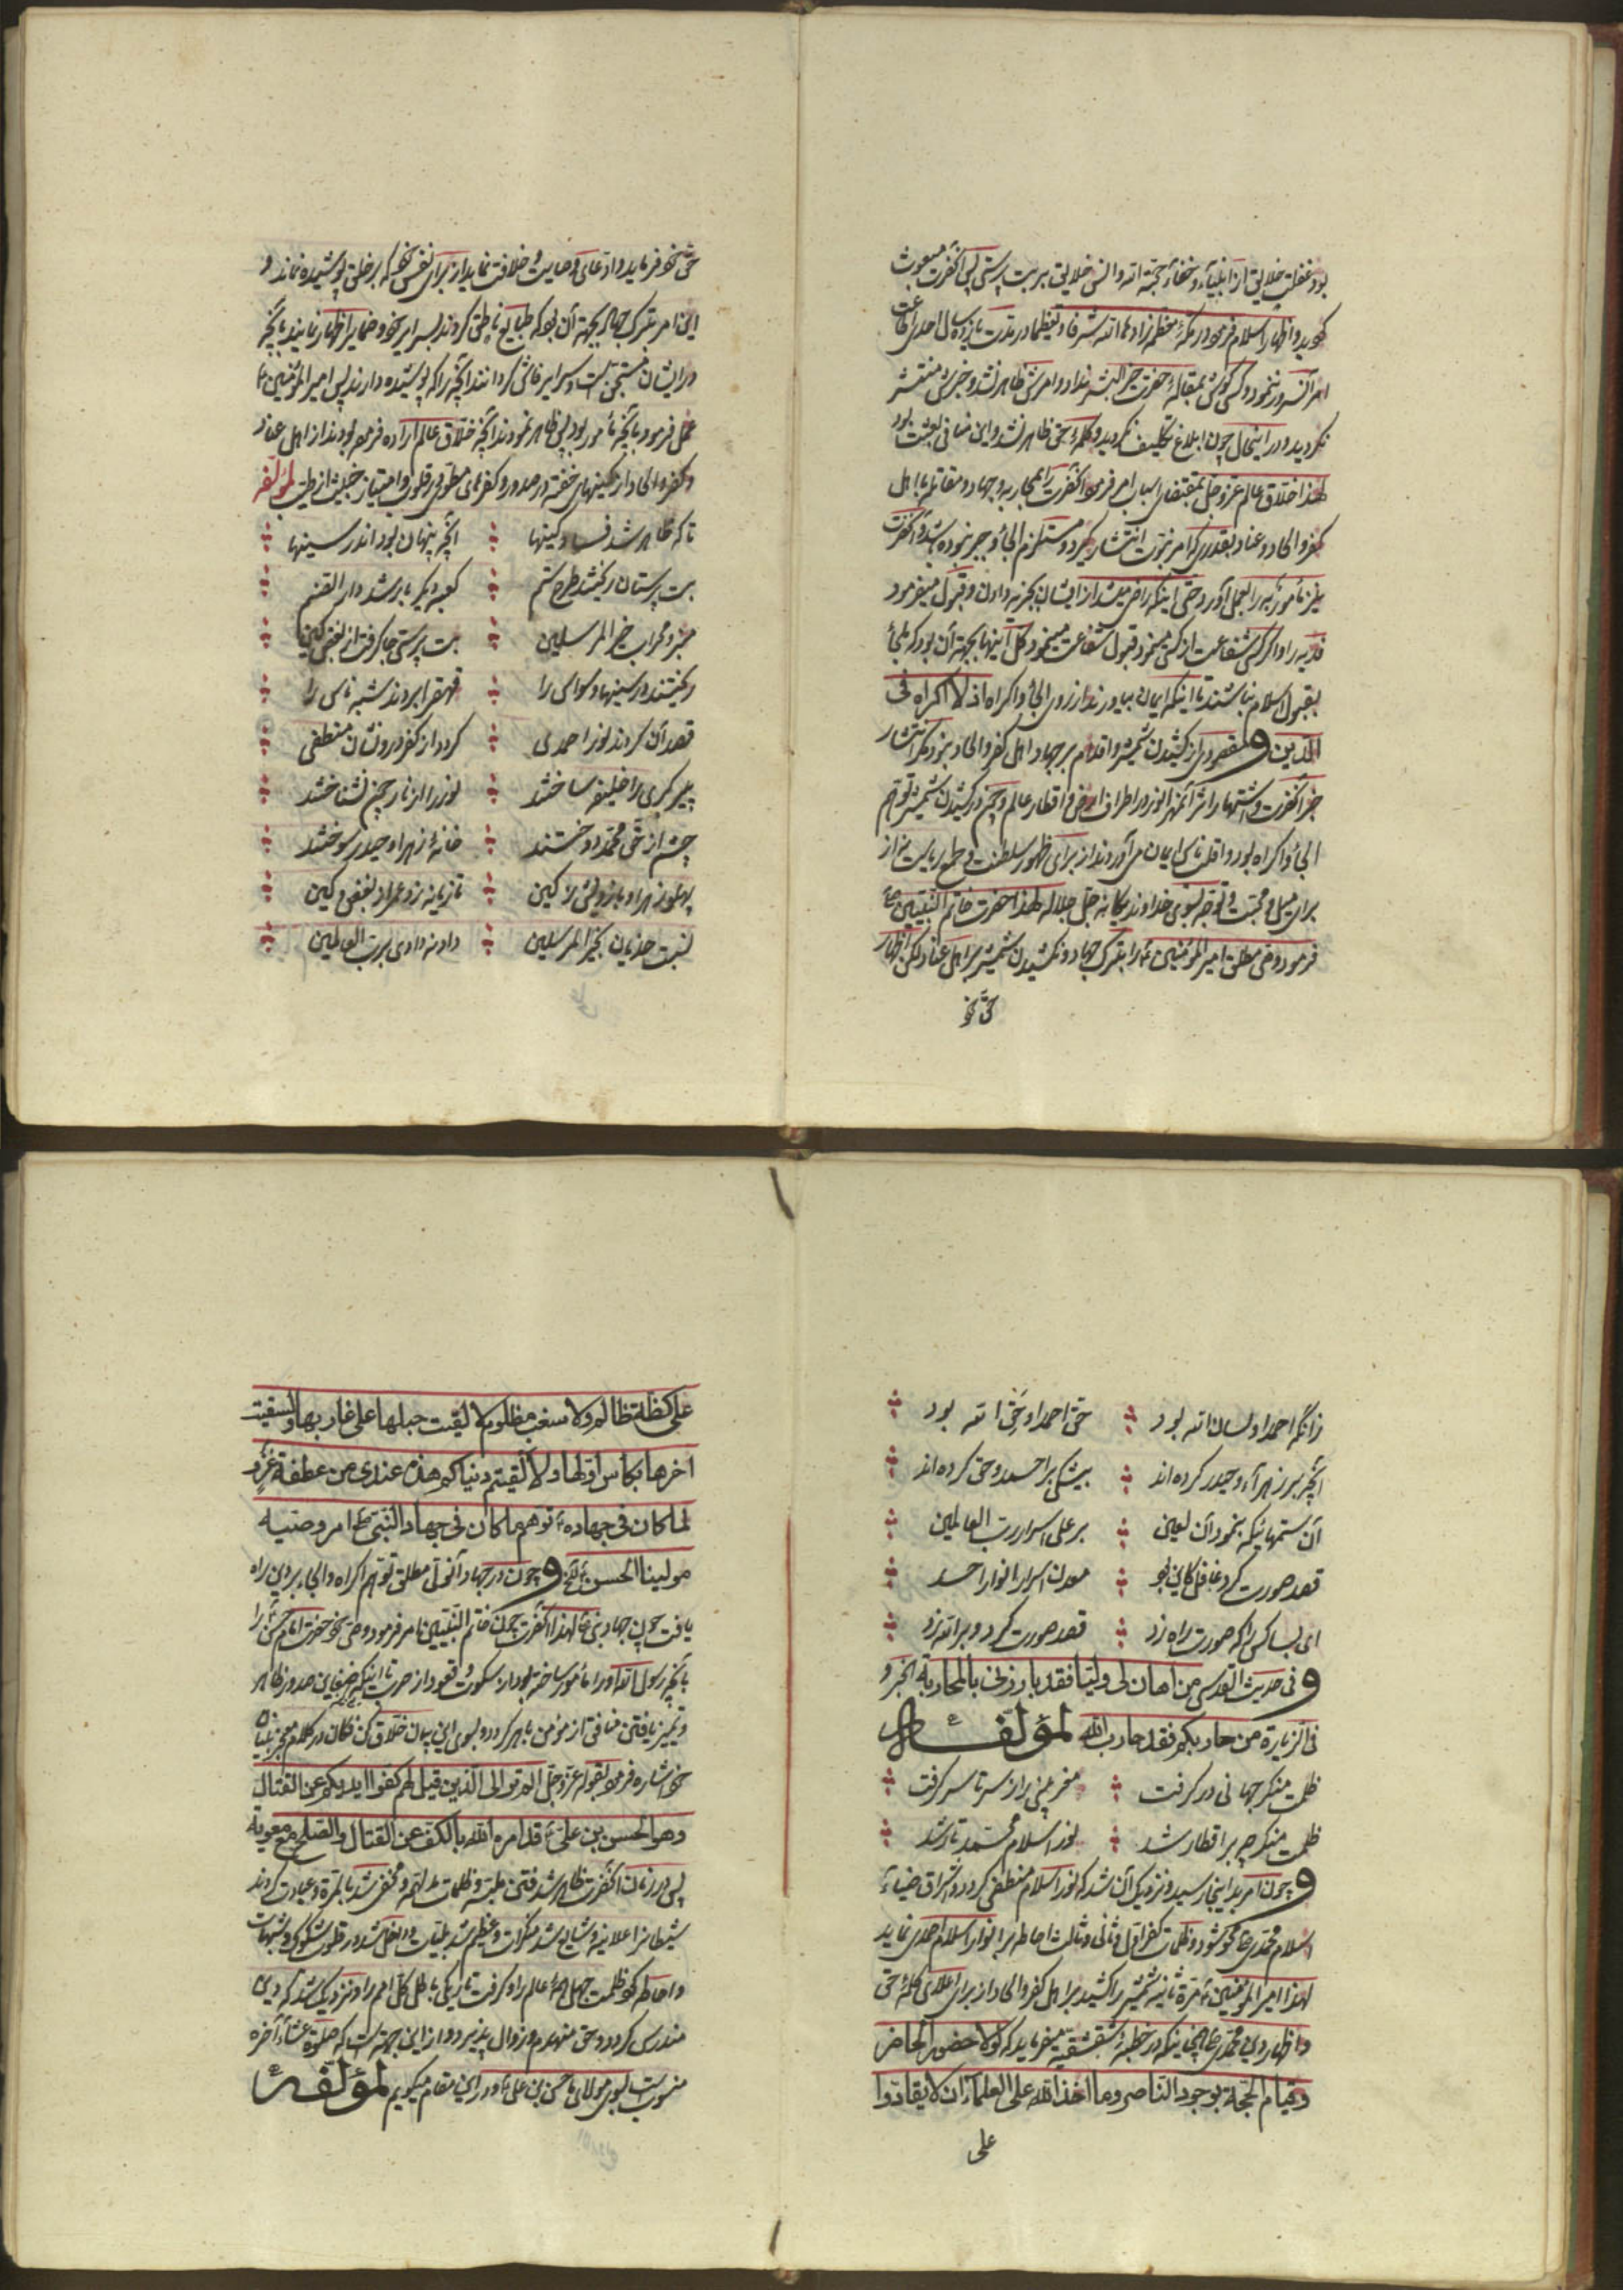 بود غفلت خلایق از انبیآء و خفآء حجّة الله و انس خلایق بر بت پرستی پس آنحضرت مبعوث
کردید و اظهار اسلام فرمود در مکّهٔ معظمه زادها الله شرفا و تعظیما در مدّت یازده سال احدی اطاعت
امر آنسرور ننمود و کسی کوش بمقالهٔ حضرت خیر البشر نداد و امرش ظاهر نشد و خبرش منتشر
نکردید و در اینحال چون ابلاغ تکلیف نکردید و کلمهٔ حق ظاهر نشد و این منافی بعثت بود
لهذا خلاّق عالم عزّ و جلّ بمقتضای اسباب امر فرمود آنحضرت را بمحاربه و جهاد و مقاتله با اهل
کفر و الحاد و عناد بقدری که امر نبوّت انتشار کیرد و مستلزم الجآء و جبر نبوده باشد و آنحضرت
نیز مأموربه را بعمل آورد حتی اینکه راضی میشد از ایشان بجزیه دادن و قبول میفرمود
فدیه را و اکر کسی شفاعت از کسی مینمود قبول شفاعت مینمود و کل اینها بجهة آن بود که ملجأ
بقبول اسلام نباشند تا اینکه ایمان بیاورند از روی الجآء و اکراه اذ لا اکراه فی
الدّین و مقصود از کشیدن شمشیر و اقدام بر جهاد اهل کفر و الحاد نبود مکر انتشار
خبر آنحضرت و اشتهار اثر آنمهر انور در اطراف ارض و اقطار عالم و چون در کشیدن شمشیر توهّم
الجآء و اکراه بود و اقلّ ناس ایمان میآوردند از برای ظهور سلطنت و طمع ریاست نه از
برای میل و محبّت و توجّه بسوی خداوند یکانه جل جلاله لهذا حضرت خاتم النّبیّین ص
فرمود وصی مطلق امیر المؤمنین ع را بترک جهاد و نکشیدن شمشیر بر اهل عناد لکن اظهار
حق خو
حق خود فرماید و ادّعای وصایت و خلافت نماید از برای نفس خود که بر خلق پوشیده نماند و
این امر بترک جهاد بجهة آن بود که طبایع ناطق کردند بسرایر خود و ضمایر اظهار نمایند بآنچه
در ایشان مستجنّ است و سرایر فاش کردانند آنچه را که پوشیده دارند پس امیر المؤمنین ع
عمل فرمود بآنچه مأمور بود پس ظاهر نمودند آنچه خلاّق عالم اراده فرموده بودند از اهل عناد
و کفر و الحاد از کینهای خفته در صدور و کفرهای مطوی در قلوب و امتیاز خبیث از طیّب لمؤلّفه
تا که ظاهر شد فساد و کینها ؞ آنچه پنهان بود اندر سینها ؞
بت پرستان ریختند طرح ستم ؞ کعبه دیکر باره شد دار الصّنم ؞
منبر و محراب خیر المرسلین ؞ بت پرستی جا کرفت از بغض و کین ؞
ریختند در سینها وسواس را ؞ قهقرا بردند شبه ناس را ؞
قصد آن کردند نور احمدی ؞ کردد از کفر درونشان منطفی ؞
پیر کبری را خلیفه ساختند ؞ نور را از نار چون نشناختند ؞
چشم از حقّ محمّد دوختند ؞ خانهٔ زهرا و حیدر سوختند ؞
پهلوی زهرا و بازویش ز کین ؞ تازیانه زد عمر از بغض و کین ؞
نسبت هذیان بخیر المرسلین ؞ داد نه دادی برب العالمین ؞
زانکه احمد او لسان الله بود ؞ حق احمد او حق الله بود ؞
آنچه بر زهرآء و حیدر کرده اند ؞ بیشکی بر احمد و حق کرده اند ؞
آن ستمهائیکه بنمود آن لعین ؞ بر علی اسرار رب العالمین ؞
قصد صورت کرد غافل کاین بود ؞ معدن اسرار انوار احد ؞
ای بسا کس را که صورت راه زد ؞ قصد صورت کرد و بر الله زد ؞
و فی حدیث القدسی من اهان لی ولیّا فقد بارزنی بالمحاربة الخبر و
فی الزیارة من حاربکم فقد حارب الله لمؤلّفه
ظلمت منکر جهانی در کرفت ؞ مخبر منبر از سر تا سر کرفت ؞
ظلمت منکر چو بر اقطار شد ؞ نور اسلام محمّد تار شد ؞
و چون امر بداینجا رسید و نزدیک آن شد که نور اسلام منطفی کردد و اشراق ضیآء
اسلام محمّدی ص محو شود و ظلمات کفر اوّل و ثانی و ثالث احاطه بر انوار اسلام احمدی نماید
لهذا امیر المؤمنین ع مرة ثانیه شمشیر را کشید بر اهل کفر و الحاد از برای اعلای کلمهٔ حق
و اظهار دین محمّدی ص چنانچه در خطبهٔ شقشقیّه میفرماید که لولا حضور الحاضر
و قیام الحجّة بوجود النّاصر و ما اخذ الله علی العلمآء ان لا یقارّوا
علی
علی کظّة ظالم و لا سغب مظلوم لالقیت حبلها علی غاربها و لسقیت
اخرها بکاس اوّلها و لالفیتم دنیاکم هذه عندی من عطفة عنز و
لما کان فی جهاده ع توهّم ما کان فی جهاد النّبی ص امر وصیه
مولینا الحسن ع الخ و چون در جهاد آنولی مطلق توهّم اکراه و الجاء بر دین راه
یافت چون جهاد نبی ص لهذا آنحضرت چون خاتم النّبیّین امر فرمود وصی خود حضرت امام حسن ع را
بآنچه رسول الله او را مأمور ساخته بود از سکوت و قعود از حرب تا اینکه ضغاین صدور ظاهر
و تمیز یافتن منافق از مؤمن باهر کردد و بسوی این بیان خلاّق کن فکان در کلام معجز بنیان
خود اشاره فرموده بقوله عزّ و جلّ الم تر الی الّذین قیل لهم کفّوا ایدیکم عن القتال
و هو الحسن بن علی ع قد امره الله بالکفّ عن القتال و الصّلح مع معویة
پس در زمان آنحضرت ظاهر شد فتن مظلمه و ظلمات مدلهمّه و مخفی شد بالمرّة و عبادت کردند
شیطانرا علانیه و شایع شد منکرات و عظیم شد بلیّات و داخل شد در قلوب شکوک و شبهات
و احاطه کرد ظلمت جهل همهٔ عالم را و کرفت تاریکی باطل کل امم را و نزدیک شد که دین
مندرس کردد و حق منهدم و زوال پذیرد و از این جهة است که صلوة عشآء آخره
منسوبست بسوی مولای ما حسن بن علی ع و در این مقام میکویم لمؤلّفه